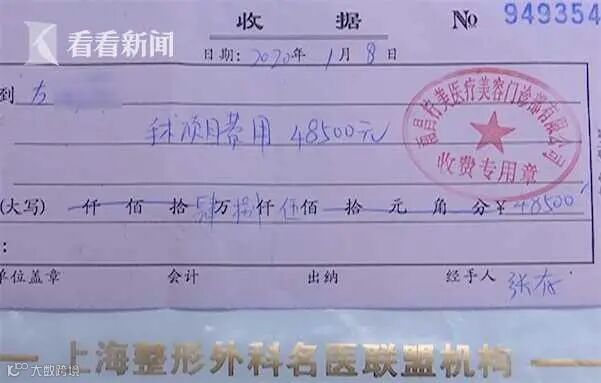 看看新闻
收 据 No 949354
日期: 2020年1月8日
到 方
手术项目费用 48500元
医疗美容门诊部有限公司
收费专用章
(大写) 仟 佰 拾 肆 万 捌 仟 伍 佰 拾 元 角 分 ¥ 48500
:
单位盖章 会计 出纳 经手人 张存
上海整形外科名医联盟机构
大数跨境